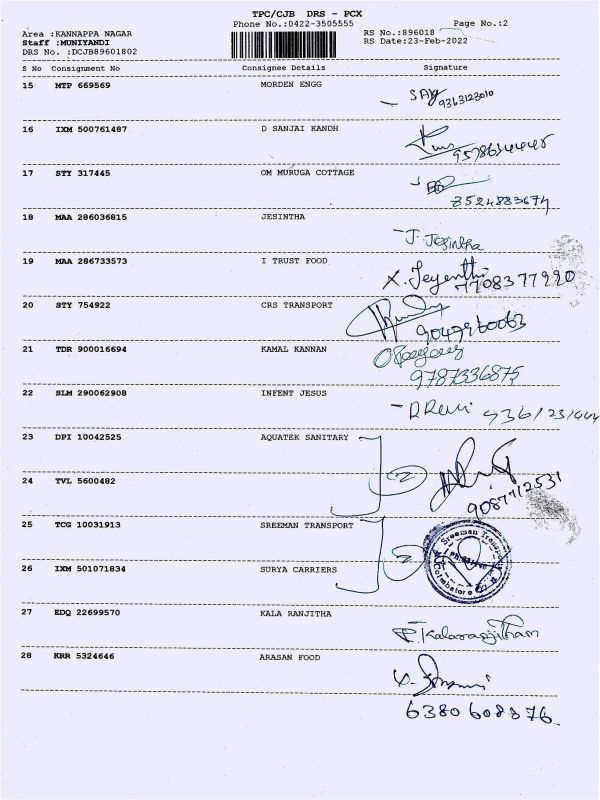 TPC/CJB DRS - PCX
Phone No.:0422-3505555
Page No.:2
Area :KANNAPPA NAGAR
RS No.:896018
Staff :MUNIYANDI
RS Date:23-Feb-2022
DRS No. :DCJB89601802
S No Consignment No Consignee Details Signature
15 MTP 669569 MORDEN ENGG
9363123010
16 IXM 500761487 D SANJAI KANDH
17 STY 317445 OM MURUGA COTTAGE
8524883674
18 MAA 286036815 JESINTHA
J. Jesintha
19 MAA 286733573 I TRUST FOOD
X. Jeyenthi
7708377990
20 STY 754922 CRS TRANSPORT
9042960063
21 TDR 900016694 KAMAL KANNAN
9787336875
22 SLM 290062908 INFENT JESUS
23 DPI 10042525 AQUATEK SANITARY
2
24 TVL 5600482
9087712531
25 TCG 10031913 SREEMAN TRANSPORT
2
Sreeman Transport
Coimbatore
26 IXM 501071834 SURYA CARRIERS
27 EDQ 22699570 KALA RANJITHA
P. Kalaranjitham
28 KRR 5324646 ARASAN FOOD
6380608876